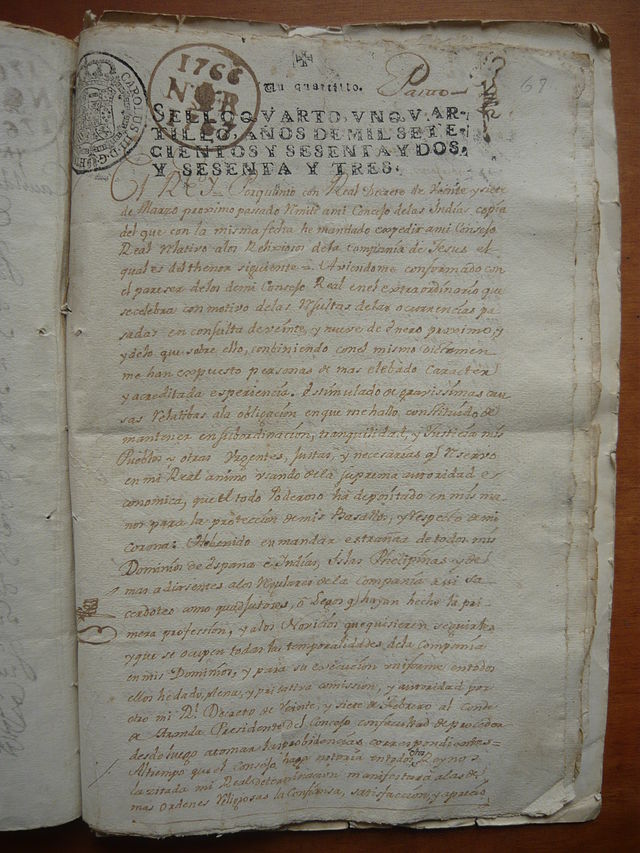 CAROLUS III D G
1766
N R
Un quartillo.
67
SELLO QVARTO, VN QVAR-
TILLO, AÑOS DE MIL SETE-
CIENTOS Y SESENTA Y DOS,
Y SESENTA Y TRES.
El Rey Por quanto con Real Decreto de Veinte y siete
de Marzo proximo pasado Remiti ami Consejo delas Indias copia
del que con la misma fecha he mandado expedir ami Consejo
Real Relativo alos Relixiosos dela compania de Jesus el
qual es del thenor siguiente = Aviendome conformado con
el pareser delos de mi Consejo Real en el extraordinario que
se celebra con motivo delas Resultas delas ocurrencias pa-
sadas en consulta de veinte, y nueve de Enero proximo, y
y delo que sobre ello, conbiniendo con el mismo Dictamen
me han expuesto personas de mas elebado Caracter
y acreditada esperiencia. Estimulado de gravissimas cau-
sas Relatibas ala obligacion en que me hallo constituido de
mantener en subordinacion, tranquilidad, y Justicia mis
Pueblos y otras Urgentes, Justas, y necesarias q Reservo
en mi Real animo usando dela suprema autoridad e-
conomica, que el todo Poderoso ha depositado en mis ma-
nos para la proteccion de mis Basallos, y Respeto de mi
corona: He benido en mandar estrañar de todos mis
Dominios de España e Indias, Islas Phelipinas y de
mas adiasentes alos Regulares dela Compañia asi Sa-
cerdotes como quadjutores, ô Legos q hayan hecho la pri-
mera profession, y alos Novicios que quisieren seguirles
y que se ocupen todas las temporalidades dela Compania
en mis Dominios, y para su execucion uniforme entodos
ellos he dado plena, y privatiba comission, y autoridad por
otro mi Rl Decreto de Veinte, y siete de Febrero al Conde
de Aranda Presidente del Consejo con facultad de proceder
desde luego atomar las probidencias correspondientes =
Al tiempo que el Consejo haga notoria en todos estos Reynos
la zitada mi Real determinacion manifestará alas de
mas Ordenes Religiosas la Confiansa, satisfaccion, y aprecio